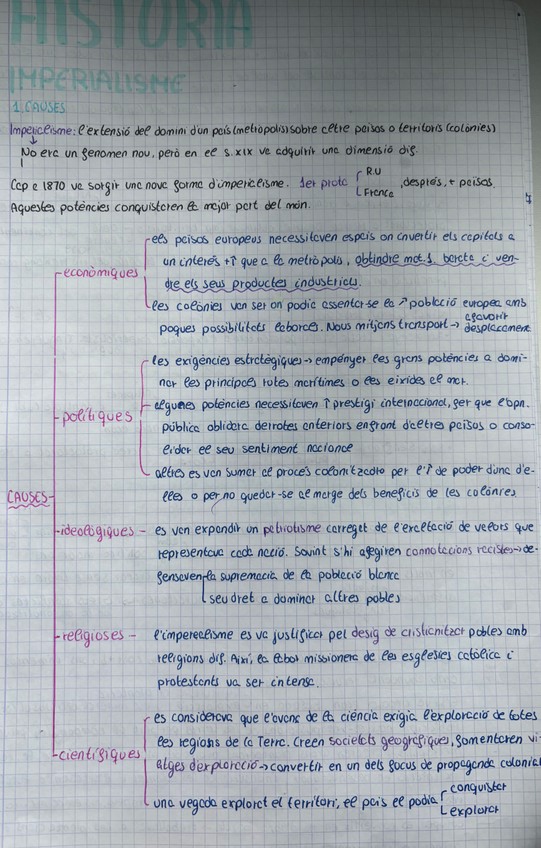 HISTÒRIA
IMPERIALISME
1. CAUSES
Imperialisme: l'extensió del domini d'un país (metròpolis) sobre altre països o territoris (colònies)
No era un fenomen nou, però en el s. XIX va adquirir una dimensió dif.
Cap a 1870 va sorgir una nova forma d'imperialisme. 1er prota R.U
França, després, + països.
Aquestes potències conquistaren la major part del món.
CAUSES
econòmiques
els països europeus necessitaven espais on invertir els capitals a
un interés +↑ que a la metròpolis, obtindre mat.1. barata i ven-
dre els seus productes industrials.
les colònies van ser on podia assentar-se la ↗ població europea amb
poques possibilitats laborals. Nous mitjans transport → afavorir
desplaçament
polítiques
les exigències estratègiques → empényer les grans potències a domi-
nar les principals rutes marítimes o les eixides al mar.
algunes potències necessitaven ↑ prestigi internacional, per que l'opn.
pública oblidara derrotes anteriors enfront d'altres països o conso-
lidar el seu sentiment nacional
altres es van sumar al procés colonitzador per l'↑ de poder d'una d'e-
lles o per no quedar-se al marge dels beneficis de les colònies
ideològiques – es van expandir un patriotisme carregat de l'exaltació de valors que
representava cada nació. Sovint s'hi afegiren connotacions racistes → de-
fensaven la supremacia de la població blanca
seu dret a dominar altres pobles
religioses – l'imperialisme es va justificar pel desig de cristianitzar pobles amb
religions dif. Així, la labor missionera de les esglésies catòlica i
protestants va ser intensa.
científiques
es considerava que l'avanç de la ciència exigia l'exploració de totes
les regions de la Terra. Creen societats geogràfiques, fomentaren vi
atges d'exploració → convertir en un dels focus de propaganda colonial
una vegada explorat el territori, el país el podia conquistar
explorar